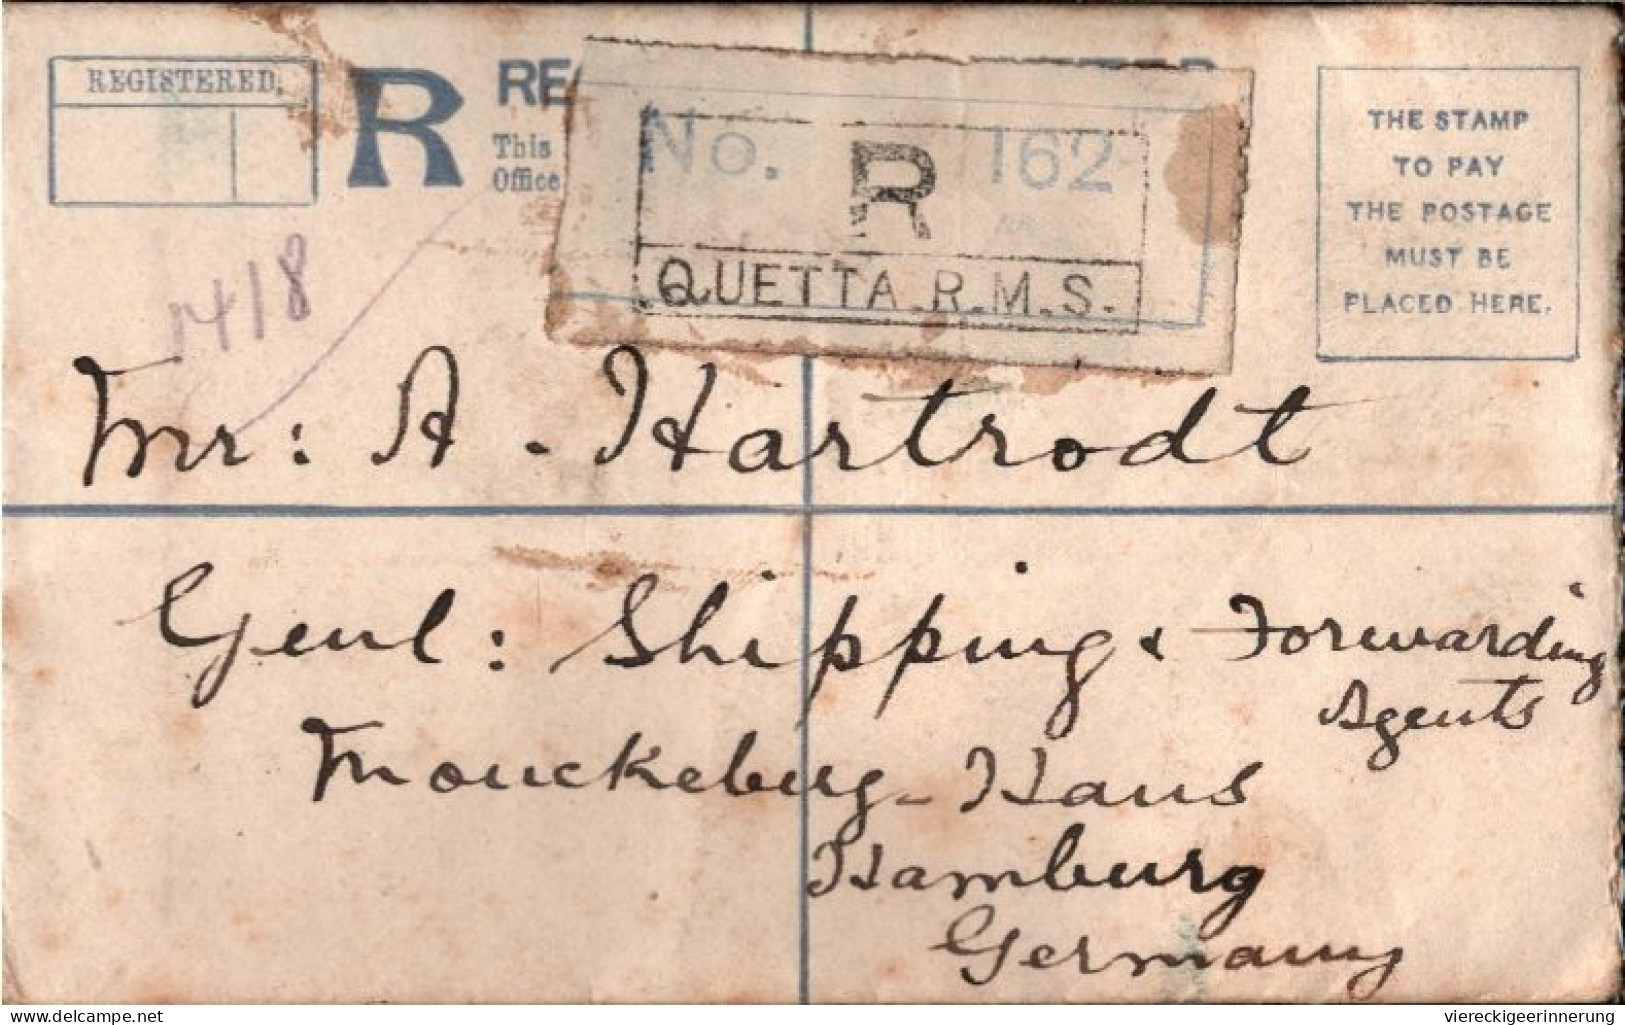 REGISTERED.
R
RE
This
Office
No. R 162
QUETTA.R.M.S.
THE STAMP
TO PAY
THE POSTAGE
MUST BE
PLACED HERE.
418
Mr: A. Hartrodt
Genl: Shipping & Forwarding
Agents
Monckeburg-Haus
Hamburg
Germany
delcampe.net
viereckigeerinnerung